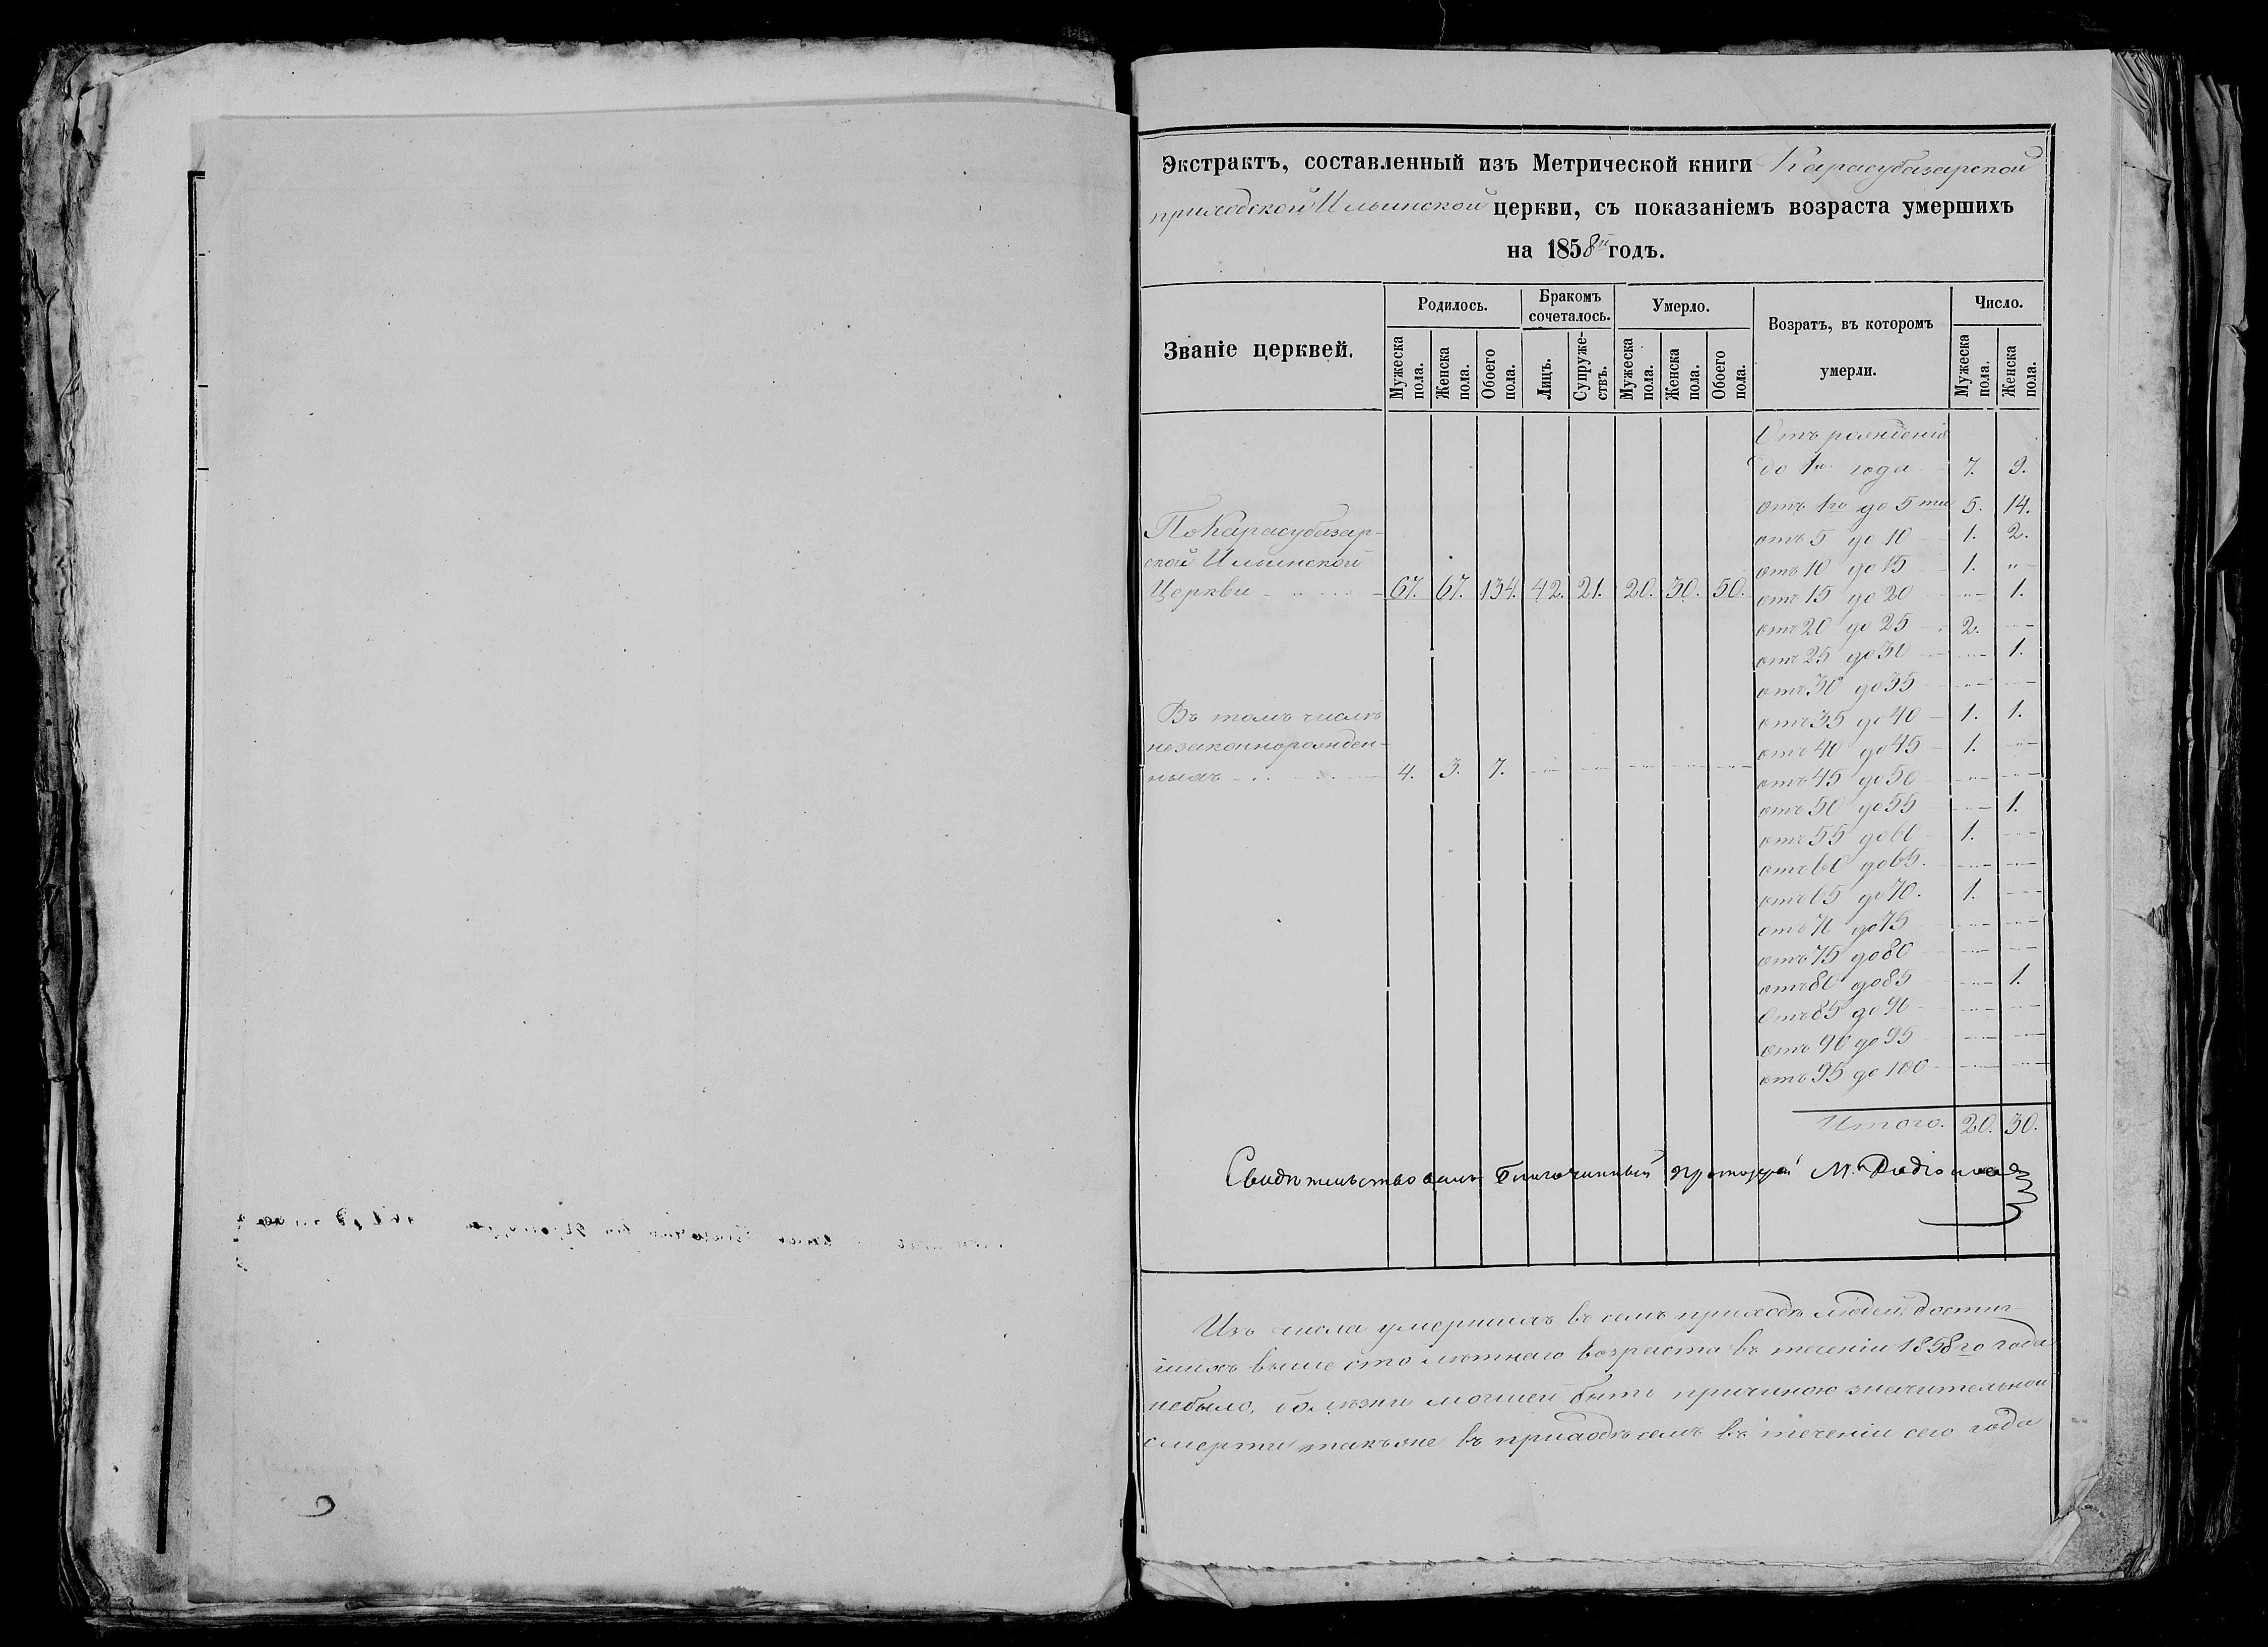 Экстрактъ, составленный изъ Метрической книги Карасубазарской
приходской Ильинской церкви, съ показаніемъ возраста умершихъ
на 1858й годъ.
Званіе церквей. Родилось. Бракомъ сочеталось. Умерло. Возратъ, въ которомъ умерли. Число.
Мужеска пола. Женска пола. Обоего пола. Лицъ. Супружествъ. Мужеска пола. Женска пола. Обоего пола. Мужеска пола. Женска пола.
Отъ рожденія
до 1го года 7. 9.
отъ 1го до 5ти 5. 14.
По Карасубазар-
отъ 5 до 10 1. 2.
ской Ильинской
отъ 10 до 15 1. "
Церкви 67. 67. 134. 42. 21. 20. 30. 50.
отъ 15 до 20 " 1.
отъ 20 до 25 2. "
отъ 25 до 30 " 1.
отъ 30 до 35 " "
Въ томъ числѣ
отъ 35 до 40 1. 1.
незаконнорожден-
отъ 40 до 45 1. "
ныхъ 4. 3. 7. " " " " "
отъ 45 до 50 " "
отъ 50 до 55 " 1.
отъ 55 до 60 1. "
отъ 60 до 65. " "
отъ 65 до 70. 1. "
отъ 70 до 75 " "
отъ 75 до 80 " "
отъ 80 до 85 " 1.
Отъ 85 до 90 " "
отъ 90 до 95 " "
отъ 95 до 100 " "
Итого. 20. 30.
Свидѣтельствовалъ Благочинный Протоіерей М. Родіонов
Изъ числа умершихъ въ семъ приходѣ людей, достиг-
шихъ выше столѣтняго возраста въ теченіи 1858го года
небыло, болѣзни могшей быть причиною значительной
смерти также въ приходѣ семъ въ теченіи сего года